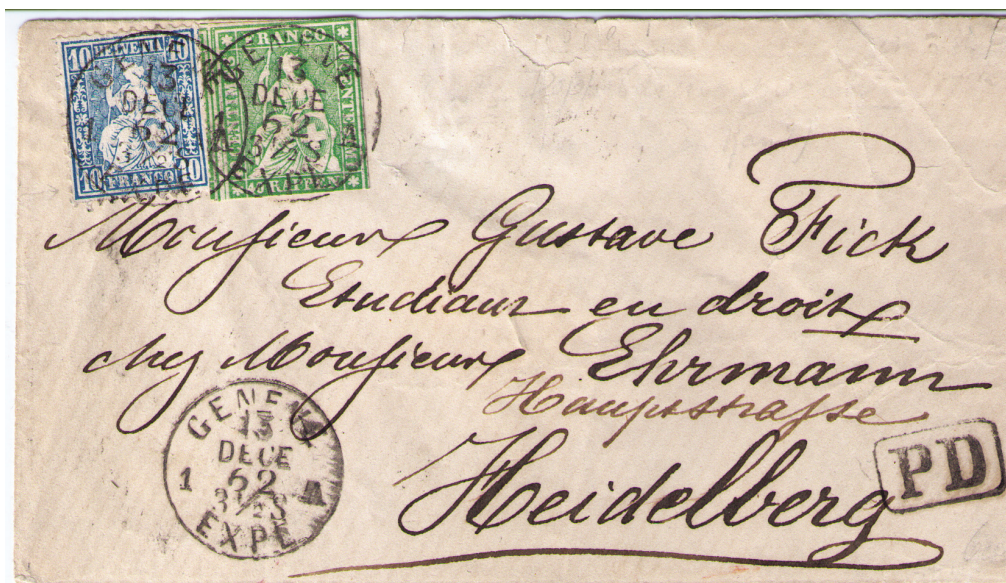 10 HELVETIA 10
10 FRANCO 10
FRANCO
CENTIMES
RAPPEN
GENEVE
13
DECE
62
1 A
GENEVE
13
DECE
62
3½S
A
Monsieur Gustave Fick
Etudiant en droit
chez Monsieur Ehrmann
Hauptstrasse
Heidelberg
PD
GENEVE
13
DECE
1 62 A
3½S
EXPE